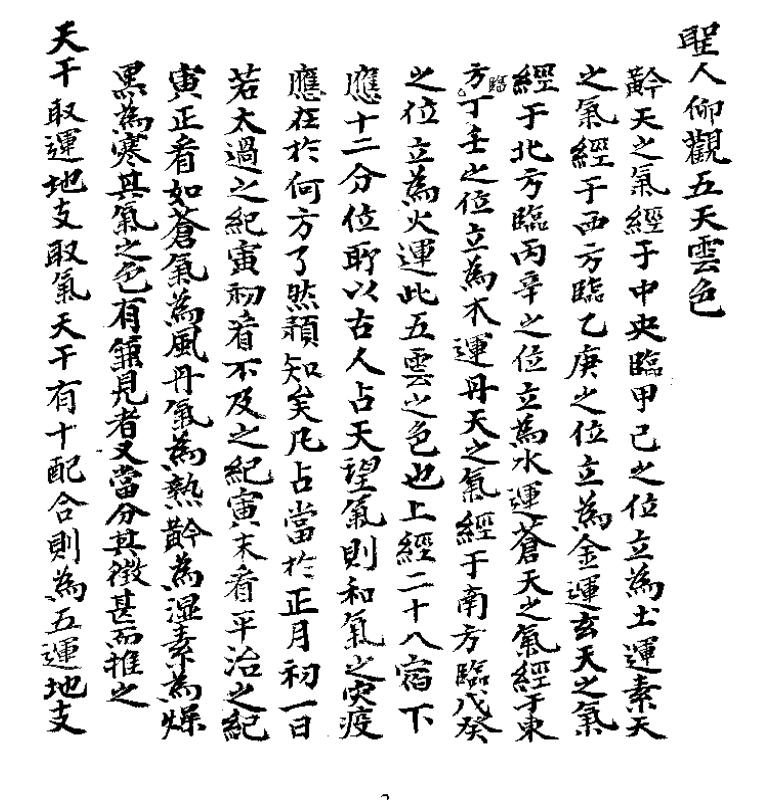 聖人仰觀五天雲色
黅天之氣經于中央臨甲己之位立為土運素天
之氣經于西方臨乙庚之位立為金運玄天之氣
經于北方臨丙辛之位立為水運蒼天之氣經于東
方臨丁壬之位立為木運丹天之氣經于南方臨戊癸
之位立為火運此五雲之色也上經二十八宿下
應十二分位所以古人占天望氣則和氣之灾疫
應在於何方了然預知矣凡占當於正月初一日
若太過之紀寅初看不及之紀寅末看平治之紀
寅正看如蒼氣為風丹氣為熱黅為湿素為燥
黑為寒其氣之色有見者又當分其微甚而推之
天干取運地支取氣天干有十配合則為五運地支